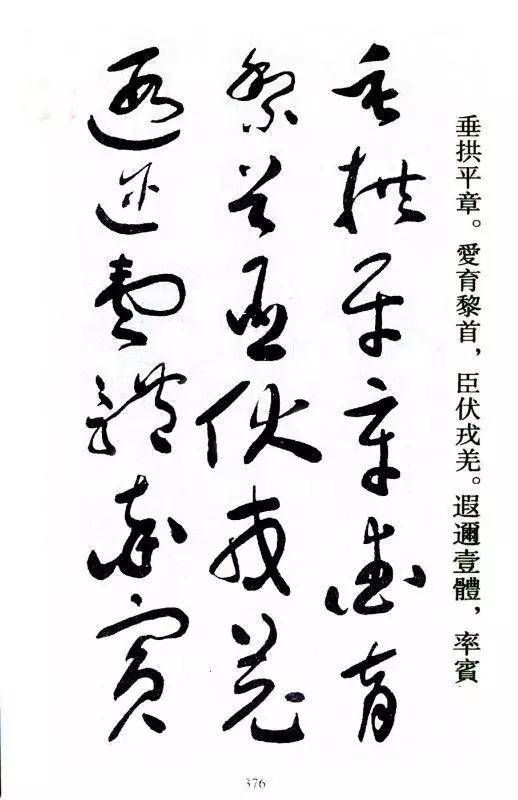 垂拱平章。愛育黎首，臣伏戎羌。遐邇壹體，率賓
垂拱平章愛育
黎首臣伏戎羌
遐邇壹體率賓
376